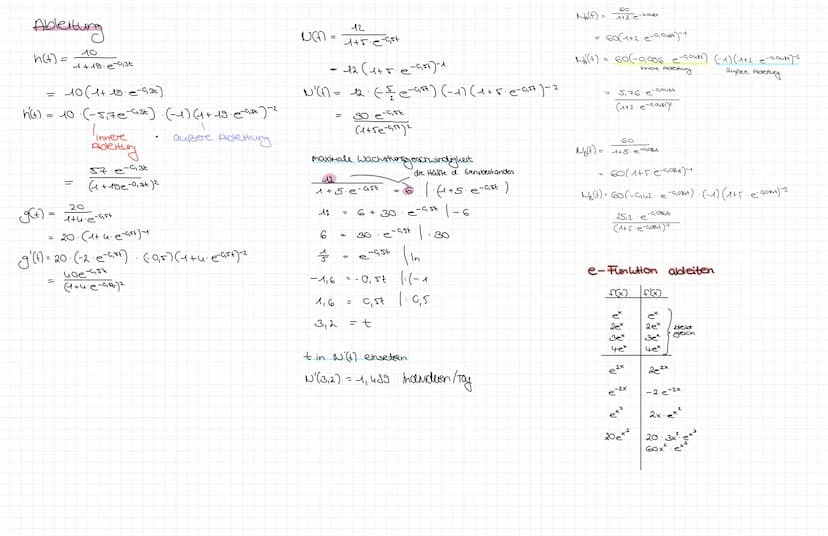 Ableitung
h(t) = 10 / 1 + 19 · e^-0,3t
= 10 (1 + 19 · e^-0,3t)^-1
h'(t) = 10 · (-5,7e^-0,3t) · (-1) (1 + 19 · e^-0,3t)^-2
innere Ableitung
äußere Ableitung
= 57 · e^-0,3t / (1 + 19e^-0,3t)^2
g(t) = 20 / 1+4·e^-0,5t
= 20 · (1 + 4 · e^-0,5t)^-1
g'(t) = 20 · (-2 · e^-0,5t) · (-0,5) (1 + 4 · e^-0,5t)^-2
= 40e^-0,5t / (1+4·e^-0,5t)^2
N(t) = 12 / 1 + 5 · e^-0,5t
= 12 (1 + 5 · e^-0,5t)^-1
N'(t) = 12 · (-5/2 e^-0,5t) (-1) (1 + 5 · e^-0,5t)^-2
= 30 e^-0,5t / (1+5e^-0,5t)^2
maximale Wachstumsgeschwindigkeit
die Hälfte d.
12 / 1 + 5 · e^-0,5t = 6 | · (1 + 5 · e^-0,5t)
12 = 6 + 30 · e^-0,5t | -6
6 = 30 · e^-0,5t | : 30
1/5 = e^-0,5t | ln
-1,6 = -0,5t | : (-1
1,6 = 0,5t | : 0,5
3,2 = t
t in N'(t) einsetzen
N'(3,2) = 1,499 Individuen/Tag
60 / 1+2 · e
= 60 (1+2 · e )^-1
= 60 (-0,096 e ) (-1) (1+2 · e )^-2
innere Ableitung
äußere Ableitung
= 5,76 · e / (1+2 · e )^2
60 / 1+5 · e
= 60 (1+5 · e )^-1
= 60 ( · e ) · (-1) (1+5 · e )^-2
e / (1+5 · e )^2
e-Funktion ableiten
f(x) | f'(x)
e^x | e^x
2e^x | 2e^x
3e^x | 3e^x
4e^x | 4e^x
bleibt gleich
e^2x | 2e^2x
e^-2x | -2 e^-2x
e^x^2 | 2x · e^x^2
20e^x^3 | 20 · 3x^2 · e^x^3
60x^2 · e^x^3